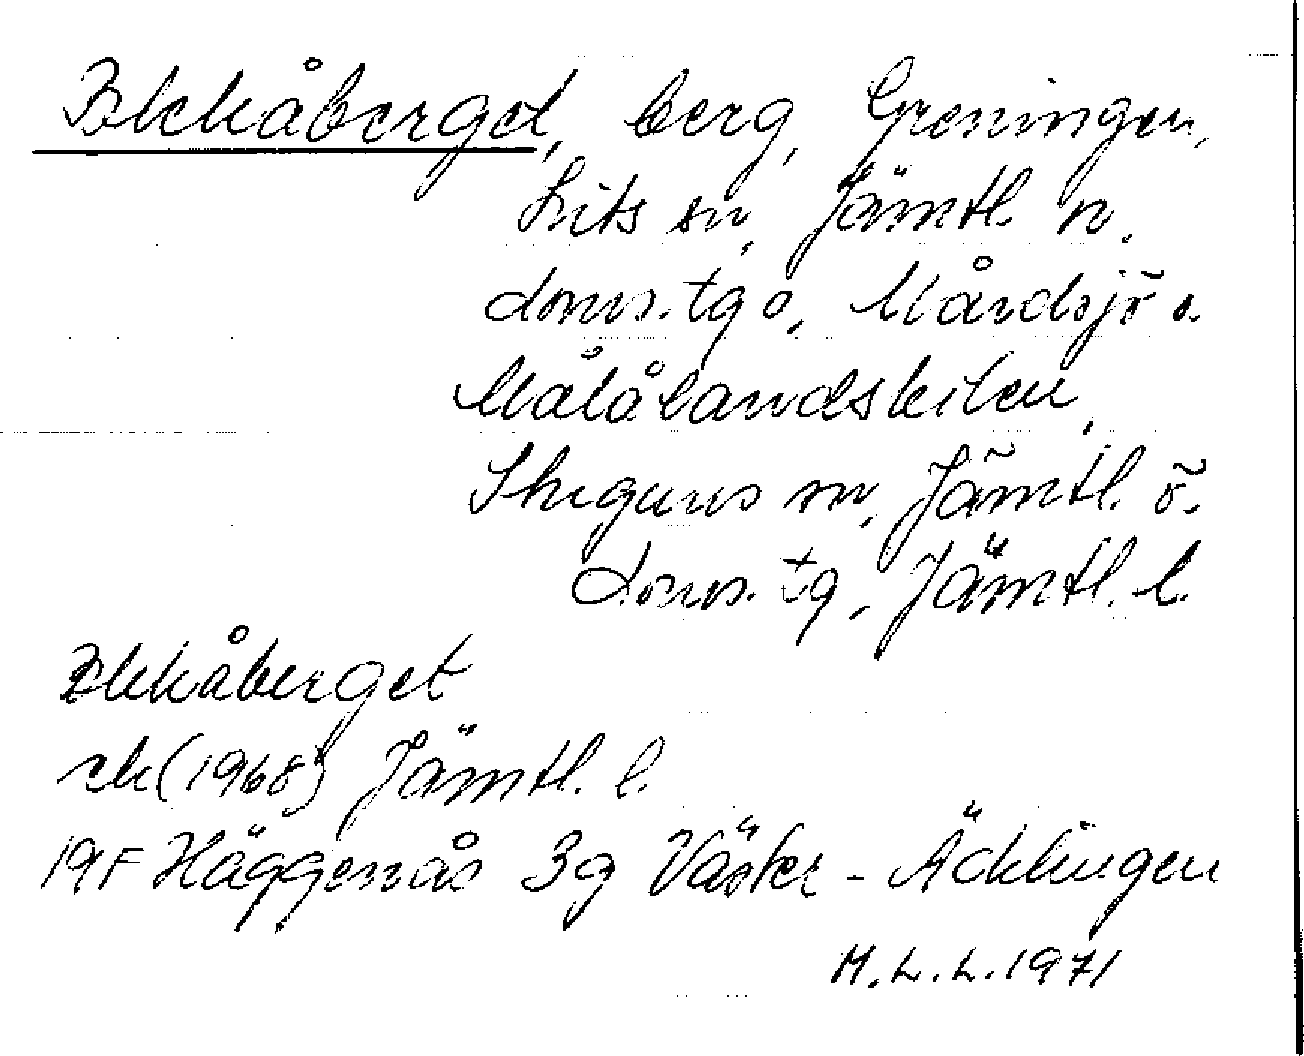 Blekåberget, berg, Greningen,
Lits sn, Jämtl. n.
doms. tg o, Mårdsjö o.
Målålandskilen,
Stuguns sn, Jämtl. ö.
doms. tg, Jämtl. l.
Blekåberget
ek (1968) Jämtl. l.
19F Häggenås 3g Väster-Äcklingen
M.L.L. 1971